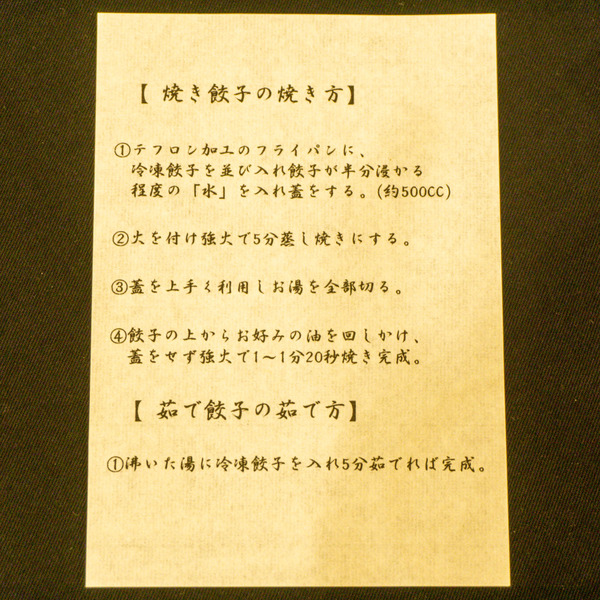 【 焼き餃子の焼き方】
①テフロン加工のフライパンに、
冷凍餃子を並び入れ餃子が半分浸かる
程度の「水」を入れ蓋をする。(約500CC)
②火を付け強火で5分蒸し焼きにする。
③蓋を上手く利用しお湯を全部切る。
④餃子の上からお好みの油を回しかけ、
蓋をせず強火で1～1分20秒焼き完成。
【 茹で餃子の茹で方】
①沸いた湯に冷凍餃子を入れ5分茹でれば完成。